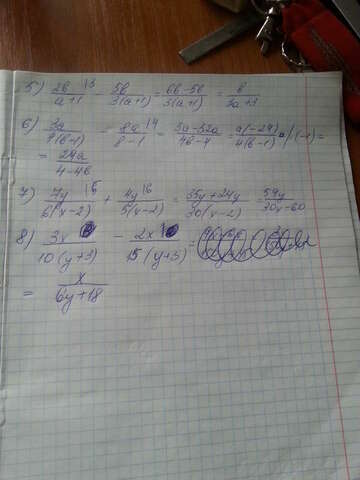 5) 2b/(a+1) |3 - 5b/(3(a+1)) = (6b-5b)/(3(a+1)) = b/(3a+3)
6) 3a/(4(b-1)) - 8a/(b-1) |4 = (3a-32a)/(4b-4) = a(-29)/(4(b-1)) |(-1) =
= 29a/(4-4b)
7) 7y/(6(x-2)) |5 + 4y/(5(x-2)) |6 = (35y+24y)/(30(x-2)) = 59y/(30x-60)
8) 3x/(10(y+3)) - 2x/(15(y+3)) =
= x/(6y+18)